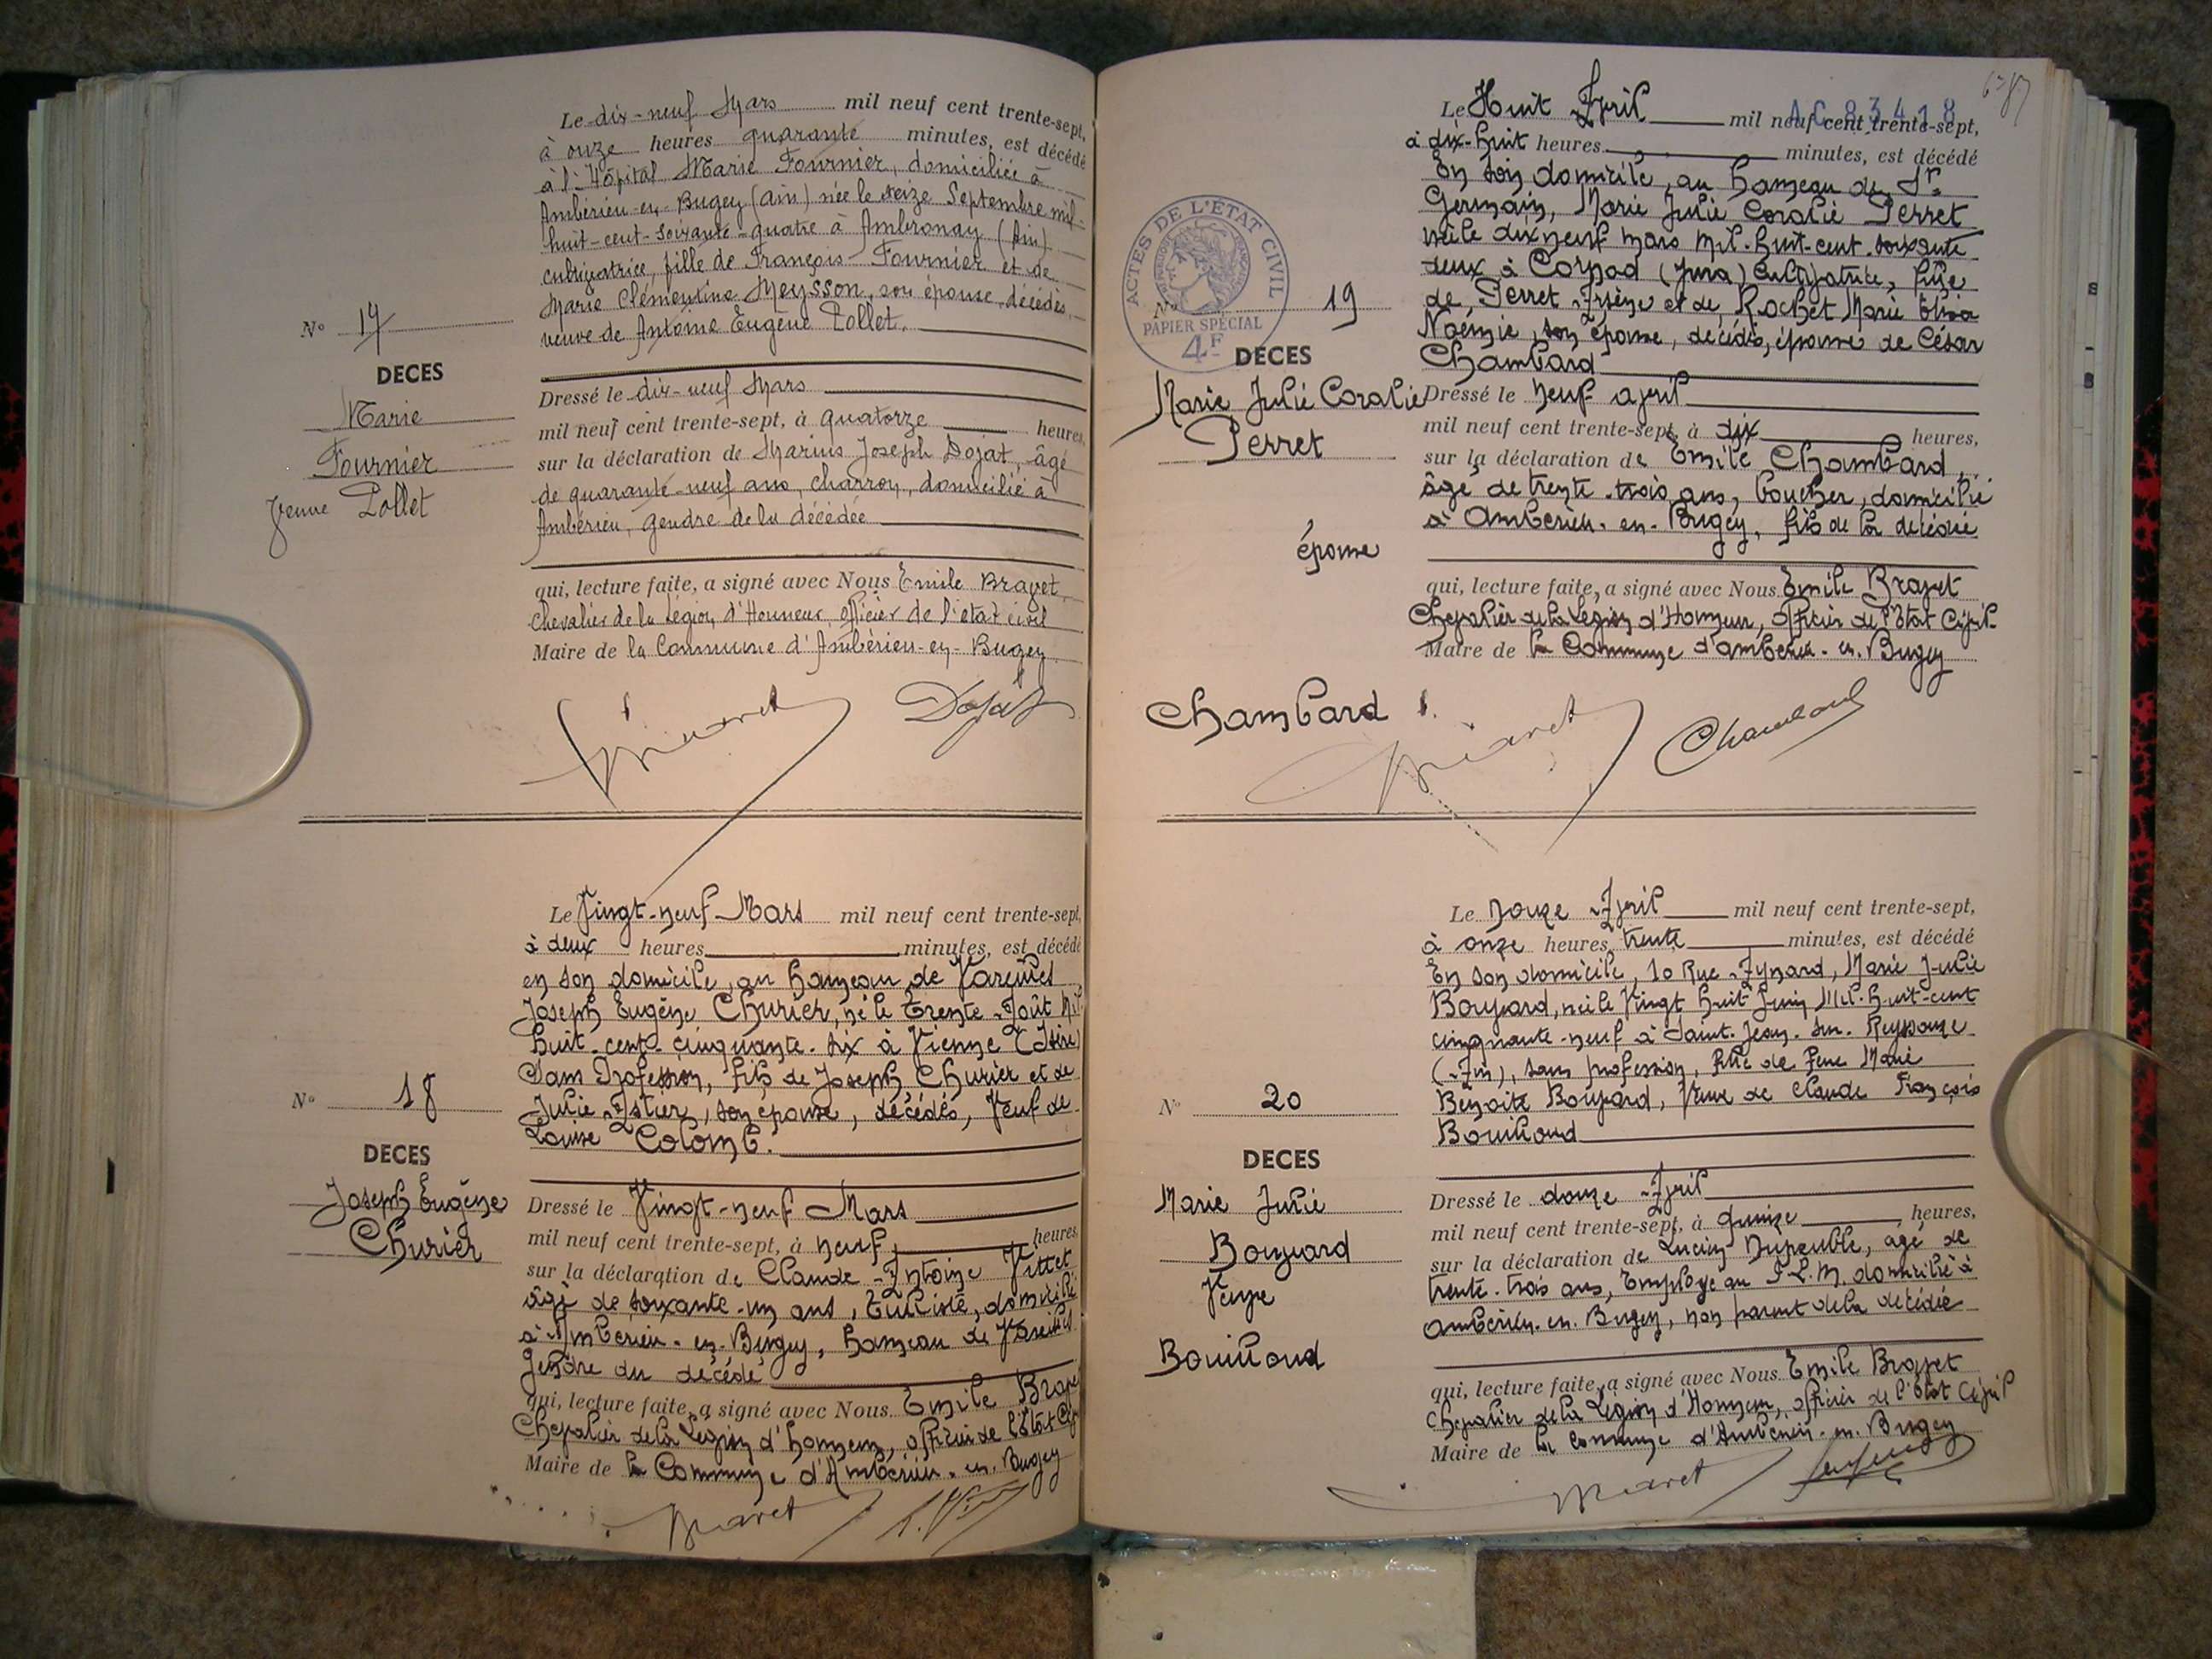 Le dix-neuf Mars mil neuf cent trente-sept,
à onze heures quarante minutes, est décédé
à l'Hôpital Marie Fournier, domiciliée à
Ambérieu-en-Bugey (Ain) née le seize Septembre mil-
huit-cent-soixante-quatre à Ambronay (Ain)
cultivatrice, fille de François Fournier et de
Marie Clémentine Meysson, son épouse, décédés,
veuve de Antoine Eugène Pollet.
N° 17
DECES
Marie
Fournier
Veuve Pollet
Dressé le dix-neuf Mars
mil neuf cent trente-sept, à quatorze heures,
sur la déclaration de Marius Joseph Dojat, âgé
de quarante-neuf ans, charron, domicilié à
Ambérieu, gendre de la décédée
qui, lecture faite, a signé avec Nous Emile Bravet,
Chevalier de la Légion d'Honneur, officier de l'état civil
Maire de la Commune d'Ambérieu-en-Bugey
Dojat
Le Vingt-neuf Mars mil neuf cent trente-sept,
à deux heures minutes, est décédé
en son domicile, au hameau de Vareilles
Joseph Eugène Churier, né le trente Août Mil
huit-cent-cinquante-six à Vienne (Isère)
Sans Profession, fils de Joseph Churier et de
Julie Astier, son épouse, décédés, Veuf de
Louise Colomb.
N° 18
DECES
Joseph Eugène
Churier
Dressé le Vingt-neuf Mars
mil neuf cent trente-sept, à neuf heures
sur la déclaration de Claude Antoine Vittet
âgé de soixante-un ans, Tulliste, domicilié
à Ambérieu-en-Bugey, hameau de Vareilles
gendre du décédé
qui, lecture faite, a signé avec Nous Emile Bravet
Chevalier de la Légion d'honneur, officier de l'Etat Civil
Maire de la Commune d'Ambérieu-en-Bugey
AC 83418
Le Huit Avril mil neuf cent trente-sept,
à dix-huit heures minutes, est décédé
En son domicile, au hameau de St
Germain, Marie Julie Coralie Perret
née le dix neuf mars mil-huit-cent-soixante
deux à (Jura) Cultivatrice, fille
de Perret Arsène et de Rochet Marie
Noémie, son épouse, décédés, épouse de César
Chambard
ACTES DE L'ÉTAT CIVIL
PAPIER SPÉCIAL
4F
N° 19
DECES
Marie Julie Coralie
Perret
épouse
Chambard
Dressé le neuf avril
mil neuf cent trente-sept, à dix heures,
sur la déclaration de Emile Chambard,
âgé de trente-trois ans, boucher, domicilié
à Ambérieu-en-Bugey, fils de la décédée
qui, lecture faite, a signé avec Nous Emile Bravet
Chevalier de la Légion d'Honneur, officier de l'Etat Civil
Maire de la Commune d'Ambérieu-en-Bugey
Chambard
Le Douze Avril mil neuf cent trente-sept,
à onze heures trente minutes, est décédé
En son domicile, 10 Rue Aynard, Marie Julie
Bouvard, née le Vingt huit Juin Mil-huit-cent
cinquante-neuf à Saint-Jean-sur-Reyssouze
(Ain), sans profession, fille de Feue Marie
Benoite Bouvard, Veuve de Claude François
Bouilloud
N° 20
DECES
Marie Julie
Bouvard
Veuve
Bouilloud
Dressé le douze Avril
mil neuf cent trente-sept, à quinze heures,
sur la déclaration de Lucien Dupeuble, âgé de
trente-trois ans, Employé au P.L.M. domicilié à
Ambérieu-en-Bugey, non parent de la décédée
qui, lecture faite, a signé avec Nous Emile Bravet
Chevalier de la Légion d'Honneur, officier de l'Etat Civil
Maire de la Commune d'Ambérieu-en-Bugey